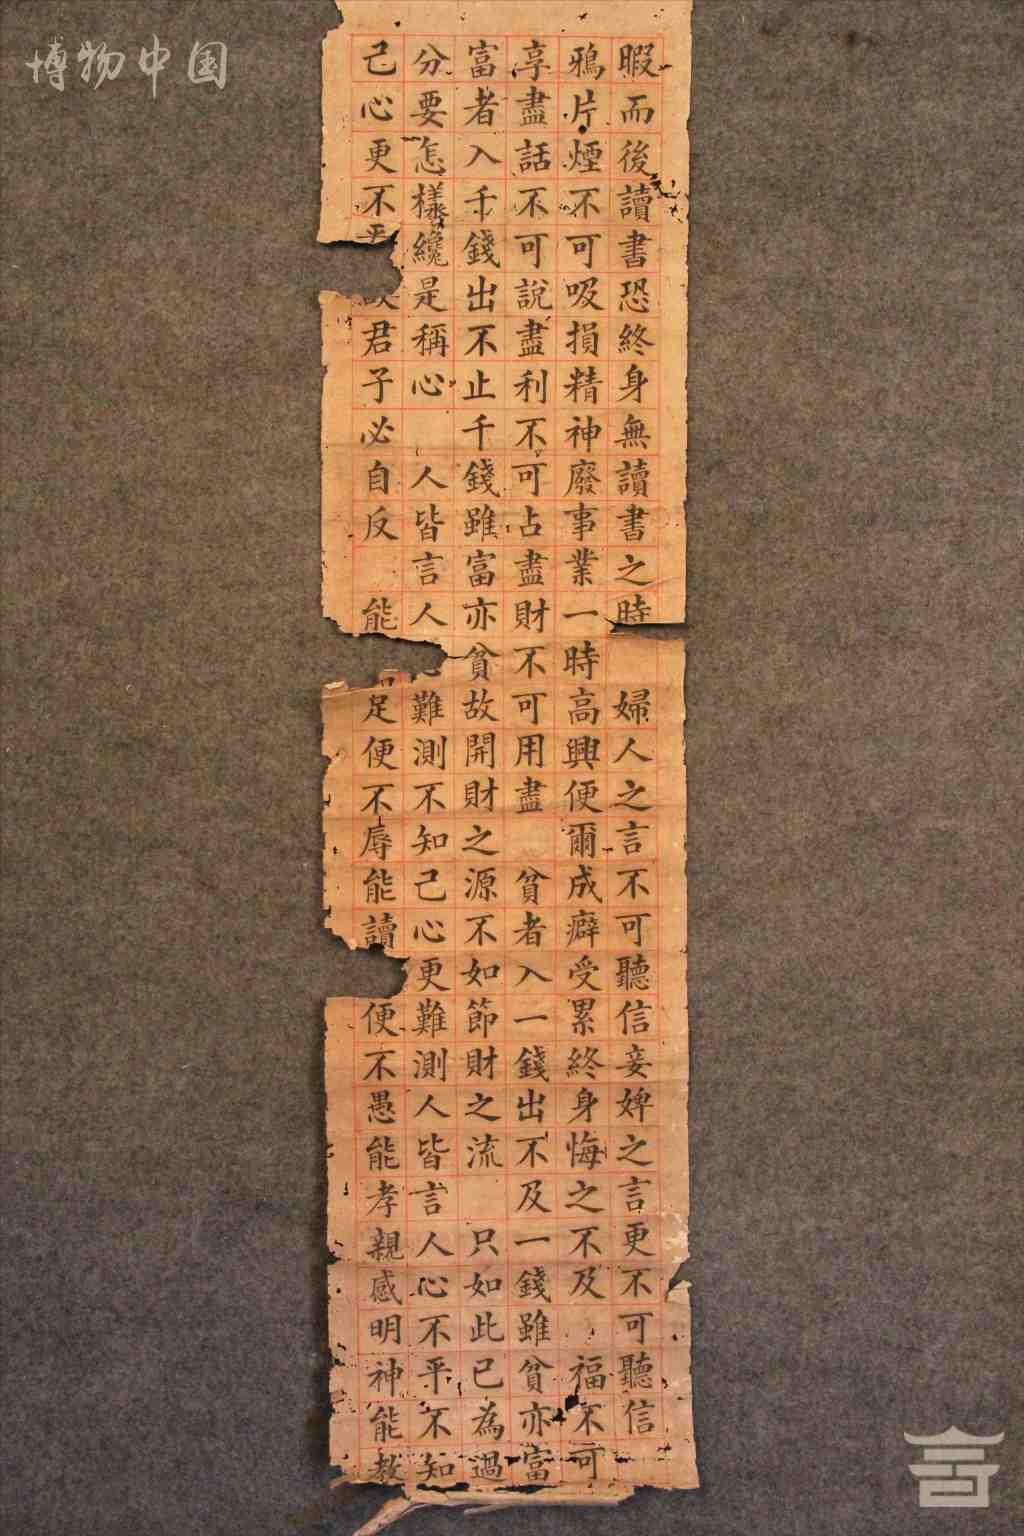 博物中国
暇而後讀書恐終身無讀書之時 婦人之言不可聽信妾婢之言更不可聽信
鴉片煙不可吸損精神廢事業一時高興便爾成癖受累終身悔之不及 福不可
享盡話不可說盡利不可占盡財不可用盡 貧者入一錢出不及一錢雖貧亦富
富者入千錢出不止千錢雖富亦貧故開財之源不如節財之流 只如此已為過
分要怎樣纔是稱心 人皆言人心難測不知己心更難測人皆言人心不平不知
己心更不平故君子必自反 能知足便不辱能讀便不愚能孝親感明神能教